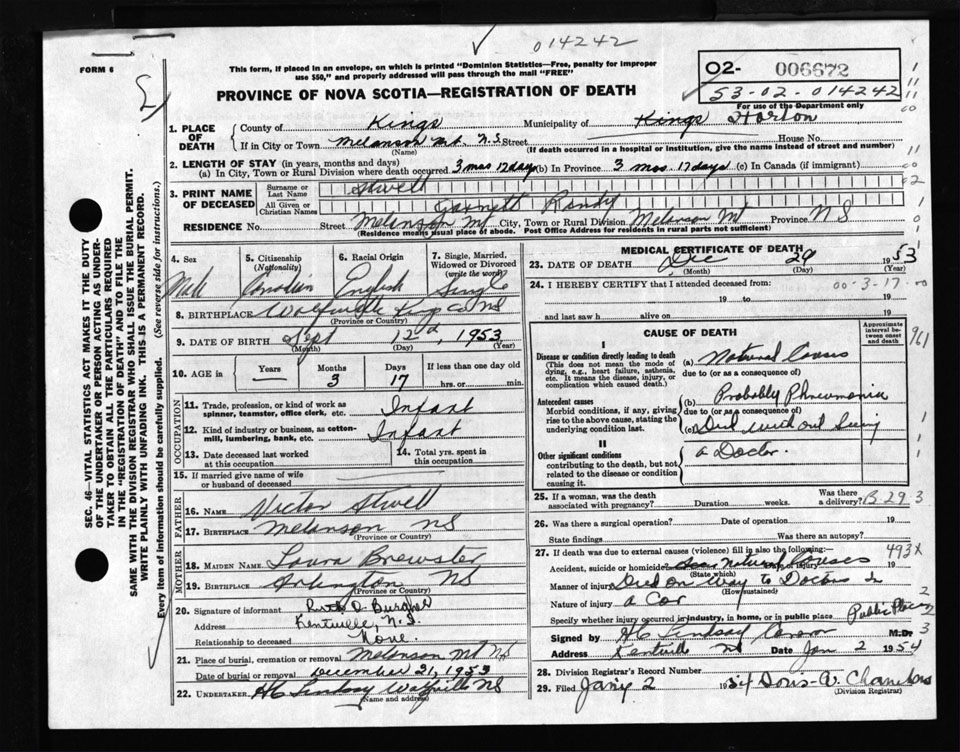 014242
FORM 6
This form, if placed in an envelope, on which is printed "Dominion Statistics—Free, penalty for improper
use $50," and properly addressed will pass through the mail "FREE"
PROVINCE OF NOVA SCOTIA—REGISTRATION OF DEATH
02- 006672
53-02-014242
For use of the Department only
1. PLACE OF DEATH
County of Kings Municipality of Kings Horton
If in City or Town Melanson Mt. N.S. Street House No.
(Name) (If death occurred in a hospital or institution, give the name instead of street and number)
2. LENGTH OF STAY (in years, months and days)
(a) In City, Town or Rural Division where death occurred 3 mos 17 days (b) In Province 3 mos. 17 days (c) In Canada (if immigrant)
3. PRINT NAME OF DECEASED
Surname or Last Name
All Given or Christian Names Garnett Randy
RESIDENCE No. Street Melanson Mt City, Town or Rural Division Melanson Mt Province NS
(Residence means usual place of abode. Post Office Address for residents in rural parts not sufficient)
4. Sex Male
5. Citizenship (Nationality) Canadian
6. Racial Origin English
7. Single, Married, Widowed or Divorced (write the word) Single
8. BIRTHPLACE Wolfville NS
(Province or Country)
9. DATE OF BIRTH Sept 12 1953
(Month) (Day) (Year)
10. AGE in Years Months 3 Days 17 If less than one day old hrs. or min.
OCCUPATION
11. Trade, profession, or kind of work as spinner, teamster, office clerk, etc. Infant
12. Kind of industry or business, as cotton-mill, lumbering, bank, etc. Infant
13. Date deceased last worked at this occupation
14. Total yrs. spent in this occupation
15. If married give name of wife or husband of deceased
FATHER
16. NAME Victor
17. BIRTHPLACE Melanson NS
(Province or Country)
MOTHER
18. MAIDEN NAME Laura Brewster
19. BIRTHPLACE Arlington NS
(Province or Country)
20. Signature of informant Ruth D.
Address Kentville, N.S.
Relationship to deceased None.
21. Place of burial, cremation or removal Melanson Mt NS
Date of burial or removal December 31, 1953
22. UNDERTAKER Lindsay Wolfville NS
(Name and address)
MEDICAL CERTIFICATE OF DEATH
23. DATE OF DEATH Dec 29 1953
(Month) (Day) (Year)
24. I HEREBY CERTIFY that I attended deceased from: 00-3-17-00
19 to 19
and last saw h alive on 19
CAUSE OF DEATH
Approximate interval between onset and death
I
Disease or condition directly leading to death (a) Natural Causes
(This does not mean the mode of dying, e.g., heart failure, asthenia, etc. It means the disease, injury, or complication which caused death.)
due to (or as a consequence of)
Antecedent causes (b) Probably Phneumonia
Morbid conditions, if any, giving rise to the above cause, stating the underlying condition last.
due to (or as a consequence of)
(c) Died without Seeing
II
Other significant conditions a Doctor.
contributing to the death, but not related to the disease or condition causing it.
25. If a woman, was the death associated with pregnancy? Duration weeks. Was there a delivery? B 29 3
26. Was there a surgical operation? Date of operation 19
State findings Was there an autopsy?
27. If death was due to external causes (violence) fill in also the following:— 493X
Accident, suicide or homicide? Natural Causes Date of injury 19
(State which)
Manner of injury Died on way to Doctors in
(How sustained)
Nature of injury a Car
Specify whether injury occurred in industry, in home, or in public place Public Place
Signed by Lindsay Coroner M.D.
Address Kentville NS Date Jan 2 1954
28. Division Registrar's Record Number
29. Filed Jan'y 2 1954 Doris V. Chambers
(Division Registrar)
SEC. 46—VITAL STATISTICS ACT MAKES IT THE DUTY
OF THE UNDERTAKER OR PERSON ACTING AS UNDER-
TAKER TO OBTAIN ALL THE PARTICULARS REQUIRED
IN THE "REGISTRATION OF DEATH" AND TO FILE THE
SAME WITH THE DIVISION REGISTRAR WHO SHALL ISSUE THE BURIAL PERMIT.
WRITE PLAINLY WITH UNFADING INK. THIS IS A PERMANENT RECORD.
Every item of information should be carefully supplied. (See reverse side for instructions.)